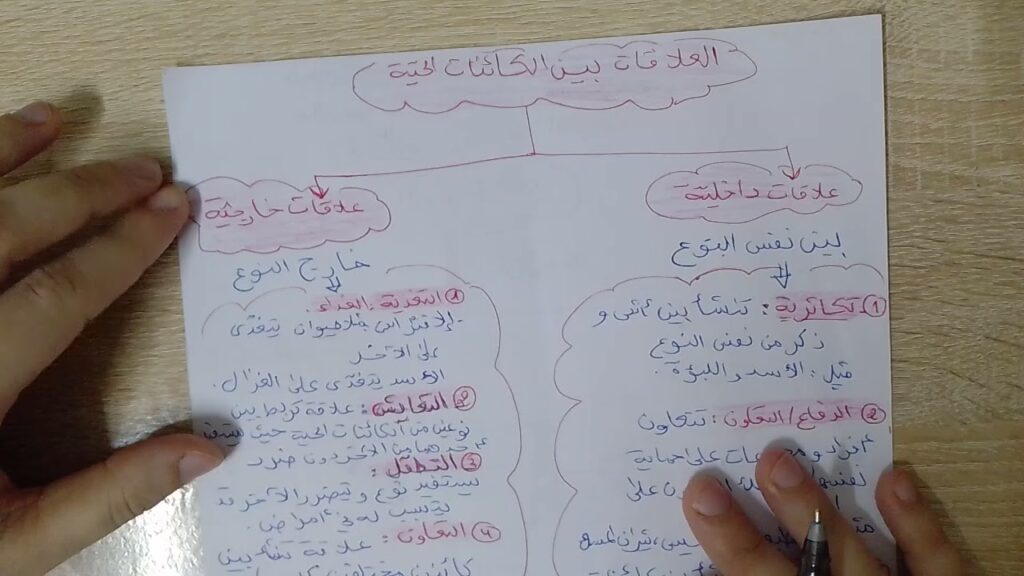 العلاقات بين الكائنات الحية
علاقات داخلية
بين نفس النوع
1 تكاثرية : تنشأ بين أنثى و
ذكر من نفس النوع
مثل : الأسد واللبؤة .
2 الدفاع / التعاون : تتعاون
أفراد و على حماية
نفسها على
علاقات خارجية
خارج النوع
1 التغذية .الغذاء .
يتغذى
على الآخر
الأسد يتغذى على الغزال .
2 التعايش : علاقة تربط بين
نوعين من الكائنات الحية حيث
أحدهما من الآخر دون ضرر
3 التطفل :
يستفيد نوع و يتضرر الآخر قد
يتسبب له في أمراض .
4 التعاون : علاقة تنشأ بين
كائنين مختلفين